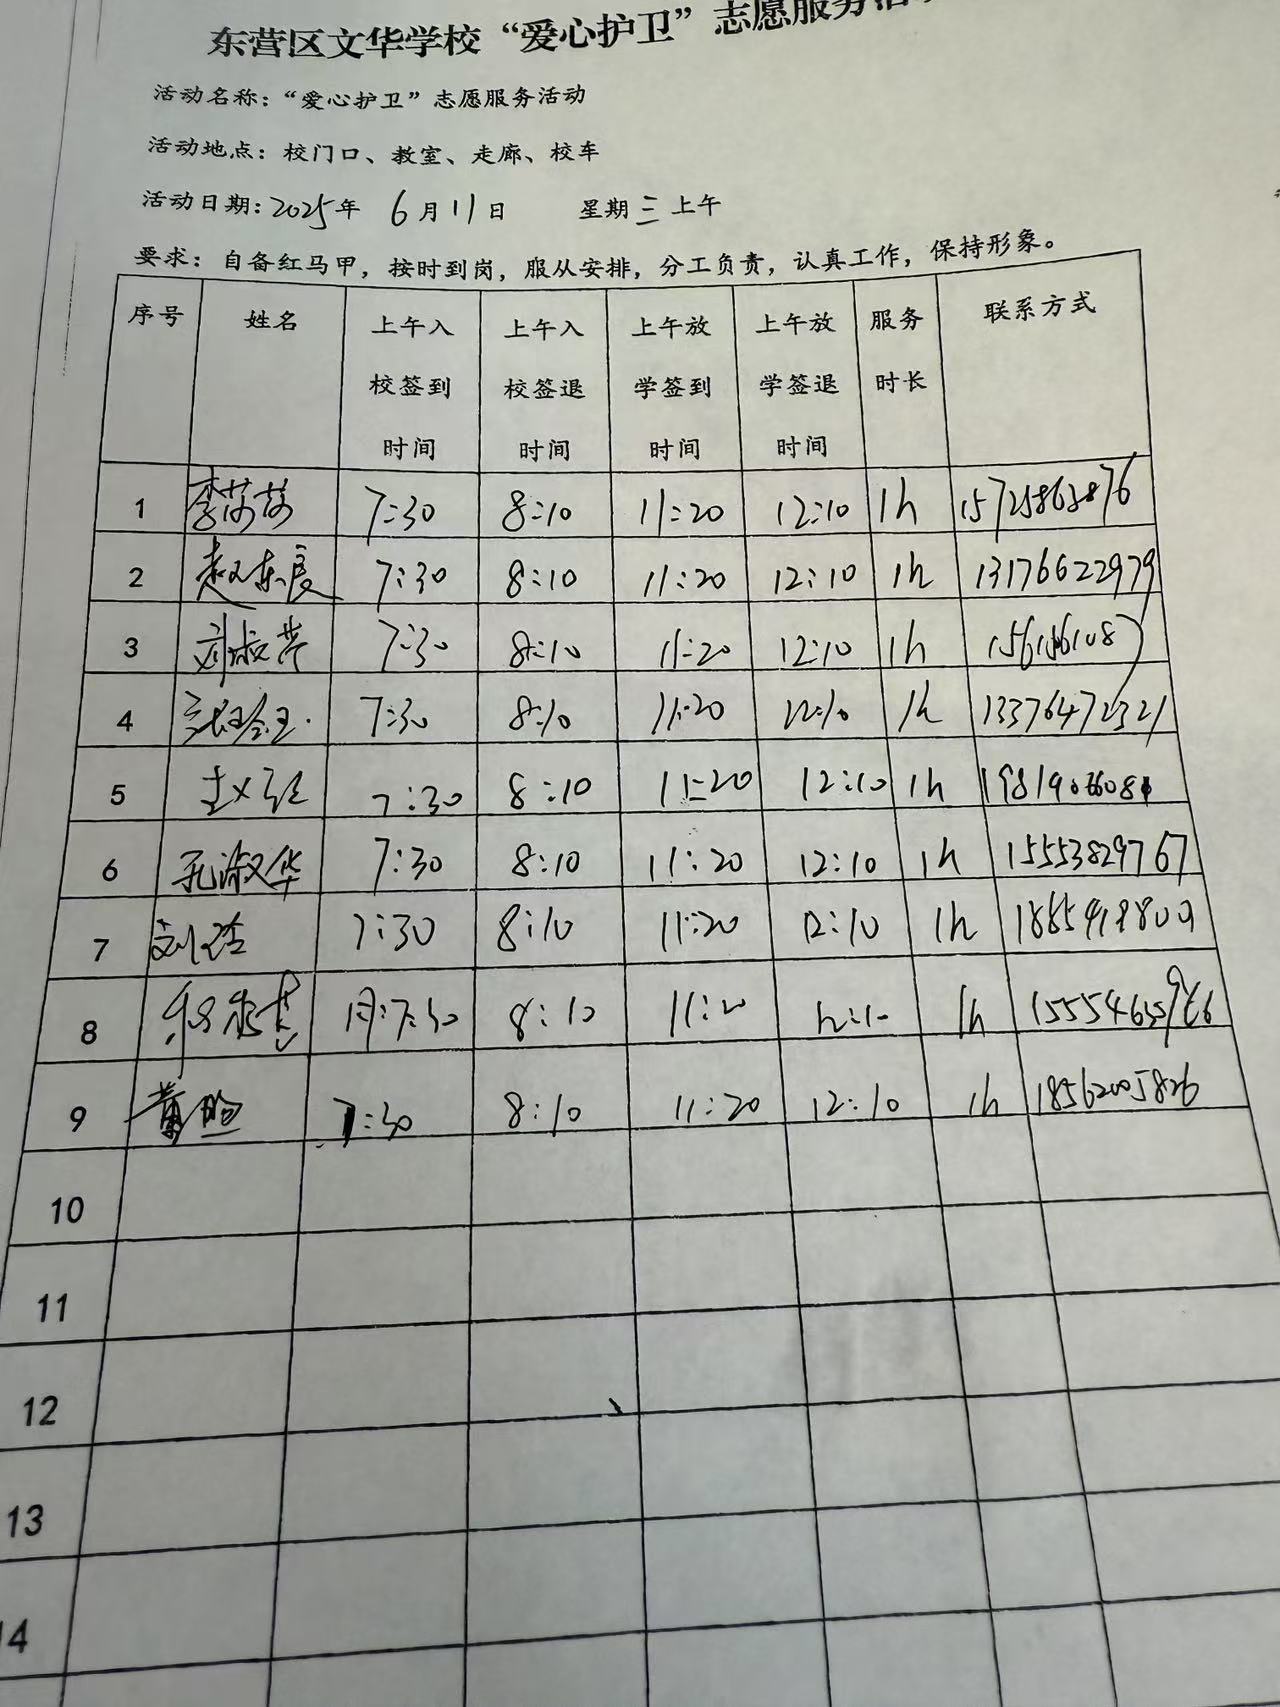 东营区文华学校“爱心护卫”志愿服务活
活动名称：“爱心护卫”志愿服务活动
活动地点：校门口、教室、走廊、校车
活动日期：2025年 6月11日 星期三上午
要求：自备红马甲，按时到岗，服从安排，分工负责，认真工作，保持形象。
序号 姓名 上午入校签到时间 上午入校签退时间 上午放学签到时间 上午放学签退时间 服务时长 联系方式
1 李莎莎 7:30 8:10 11:20 12:10 1h
2 赵东辰 7:30 8:10 11:20 12:10 1h 13176622979
3 刘淑芹 7:30 8:10 11:20 12:10 1h
4 7:30 8:10 11:20 12:10 1h 13376472321
5 7:30 8:10 11:20 12:10 1h
6 孔淑华 7:30 8:10 11:20 12:10 1h 15553829767
7 刘洁 7:30 8:10 11:20 12:10 1h
8 7:30 8:10 11:20 12:10 1h
9 7:30 8:10 11:20 12:10 1h 18562005826
10
11
12
13
14